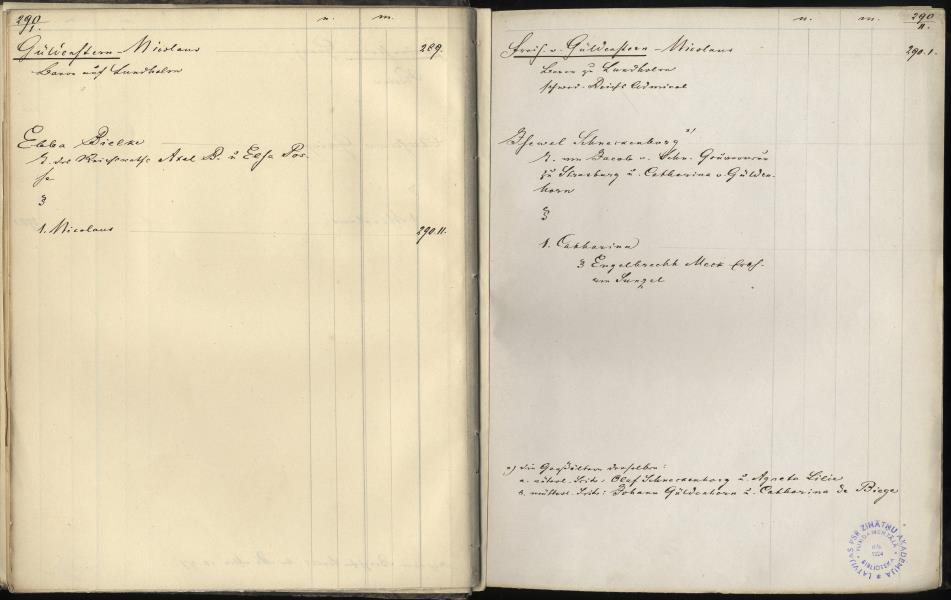 290/I.
n.
m.
Güldenstern Nicolaus 289.
Baron auf Lundholm
Ebba Bielke
T. des Reichsraths Axel B. u Elsa Pos-
se
3
1. Nicolaus 290.II.
n.
m.
290/II.
Freih. v. Güldenstern Nicolaus 290.I.
Baron zu Lundholm
schwed. Reichs Admiral
Schneckenborg *)
T. von Jacob v. Schn. Gouverneur
zu Strasburg u. Catharina v. Gülden-
horn
3
1. Catharina
3 Engelbrecht Meck Erbh.
von Sunzel
*) die Großältern derselben:
a. väterl. Seits: Olaf Schneckenborg u. Agneta Lilie
b. mütterl. Seits: Johann Güldenhorn u. Catharina de Biege
LATVIJAS PSR ZINĀTŅU AKADĒMIJA
FUNDAMENTĀLĀ
BIBLIOTĒKA